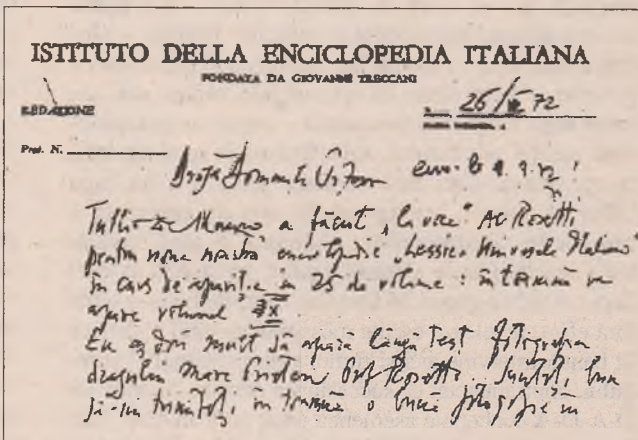 ISTITUTO DELLA ENCICLOPEDIA ITALIANA
FONDATA DA GIOVANNI TRECCANI
REDAZIONE
26/ 72
Prot. N.
Tullio de Mauro a făcut „la voce" Al Rosetti
pentru noua noastră enciclopedie „Lessico Universale Italiano"
în curs de apariție în 25 de volume : în toamnă va
apare volumul
Eu aș dori mult să apară lângă text fotografia
dragului mare prieten Prof Rosetti. Sunteți bun
să-mi trimiteți, în toamnă o bună fotografie în